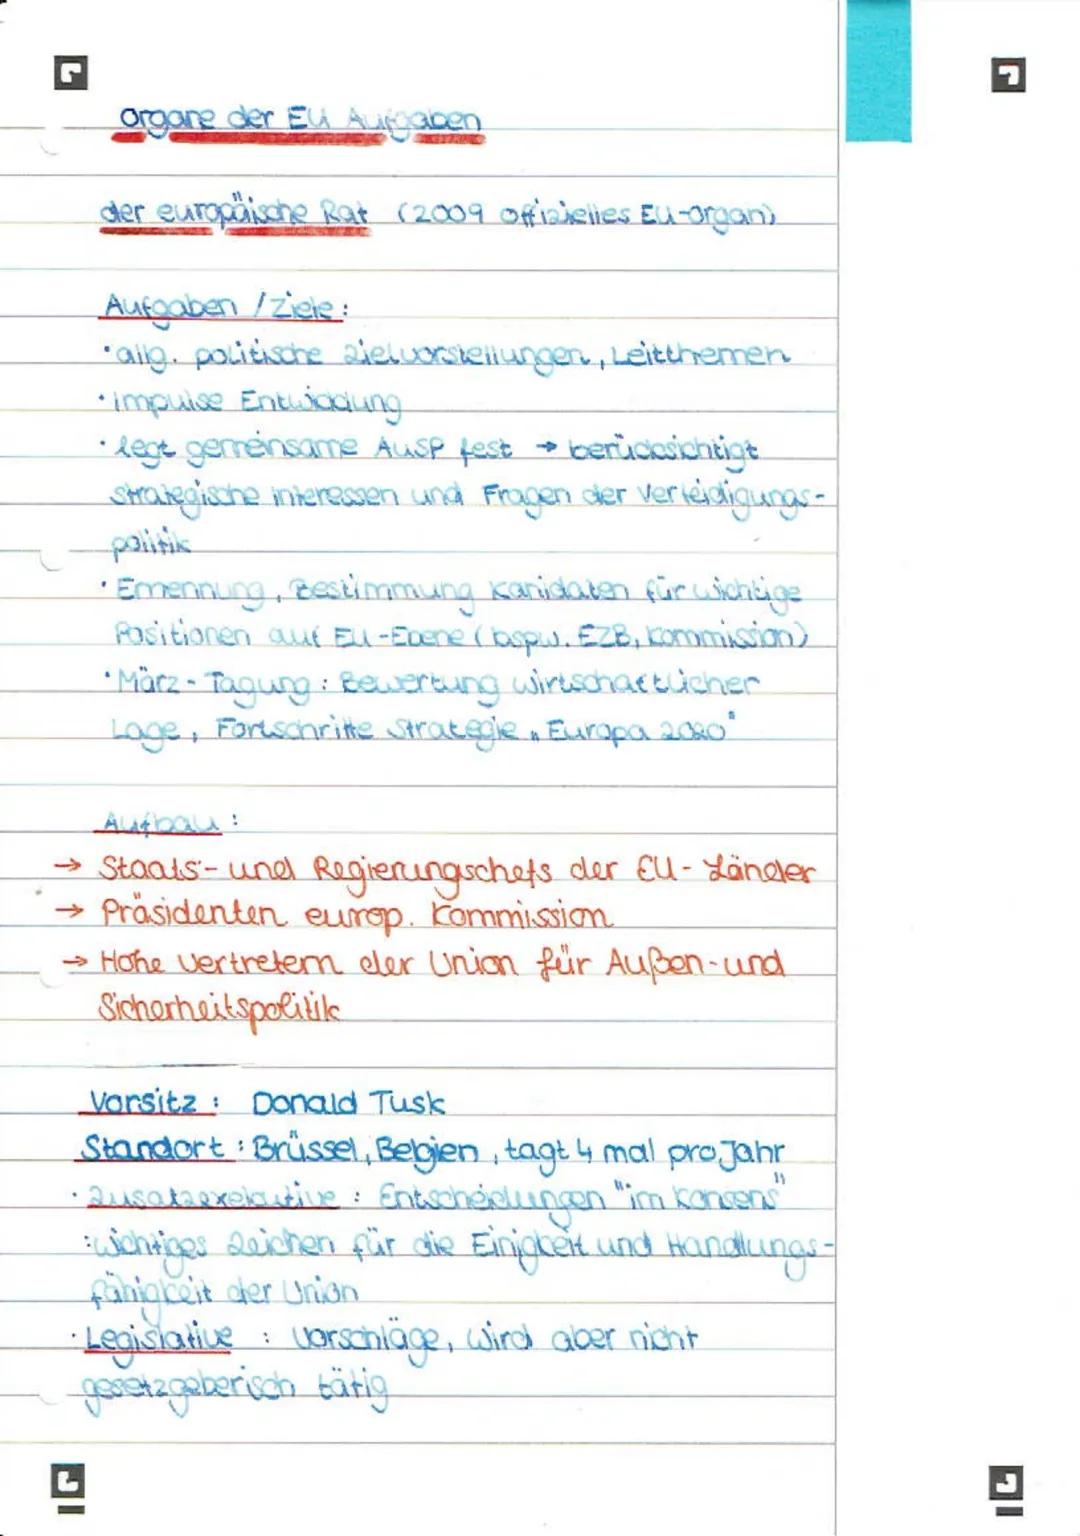 Organe der EU Aufgaben
der europäische Rat (2009 offizielles EU-Organ)
Aufgaben / Ziele:
• allg. politische Zielvorstellungen, Leitthemen
• Impulse Entwicklung
• legt gemeinsame AuSP fest → berücksichtigt
strategische interessen und Fragen der Verteidigungs-
politik
• Ernennung, Bestimmung Kanidaten für wichtige
Positionen auf EU-Ebene (bspw. EZB, Kommission)
• März-Tagung: Bewertung wirtschaftlicher
Lage, Fortschritte Strategie „Europa 2020"
Aufbau:
→ Staats- und Regierungschefs der EU-Länder
→ Präsidenten europ. Kommission
→ Hohe Vertretern der Union für Außen- und
Sicherheitspolitik
Vorsitz: Donald Tusk
Standort: Brüssel, Belgien, tagt 4 mal pro Jahr
• Zusatzexekutive: Entscheidungen "im Konsens"
: wichtiges Zeichen für die Einigkeit und Handlungs-
fähigkeit der Union
• Legislative: Vorschläge, wird aber nicht
gesetzgeberisch tätig